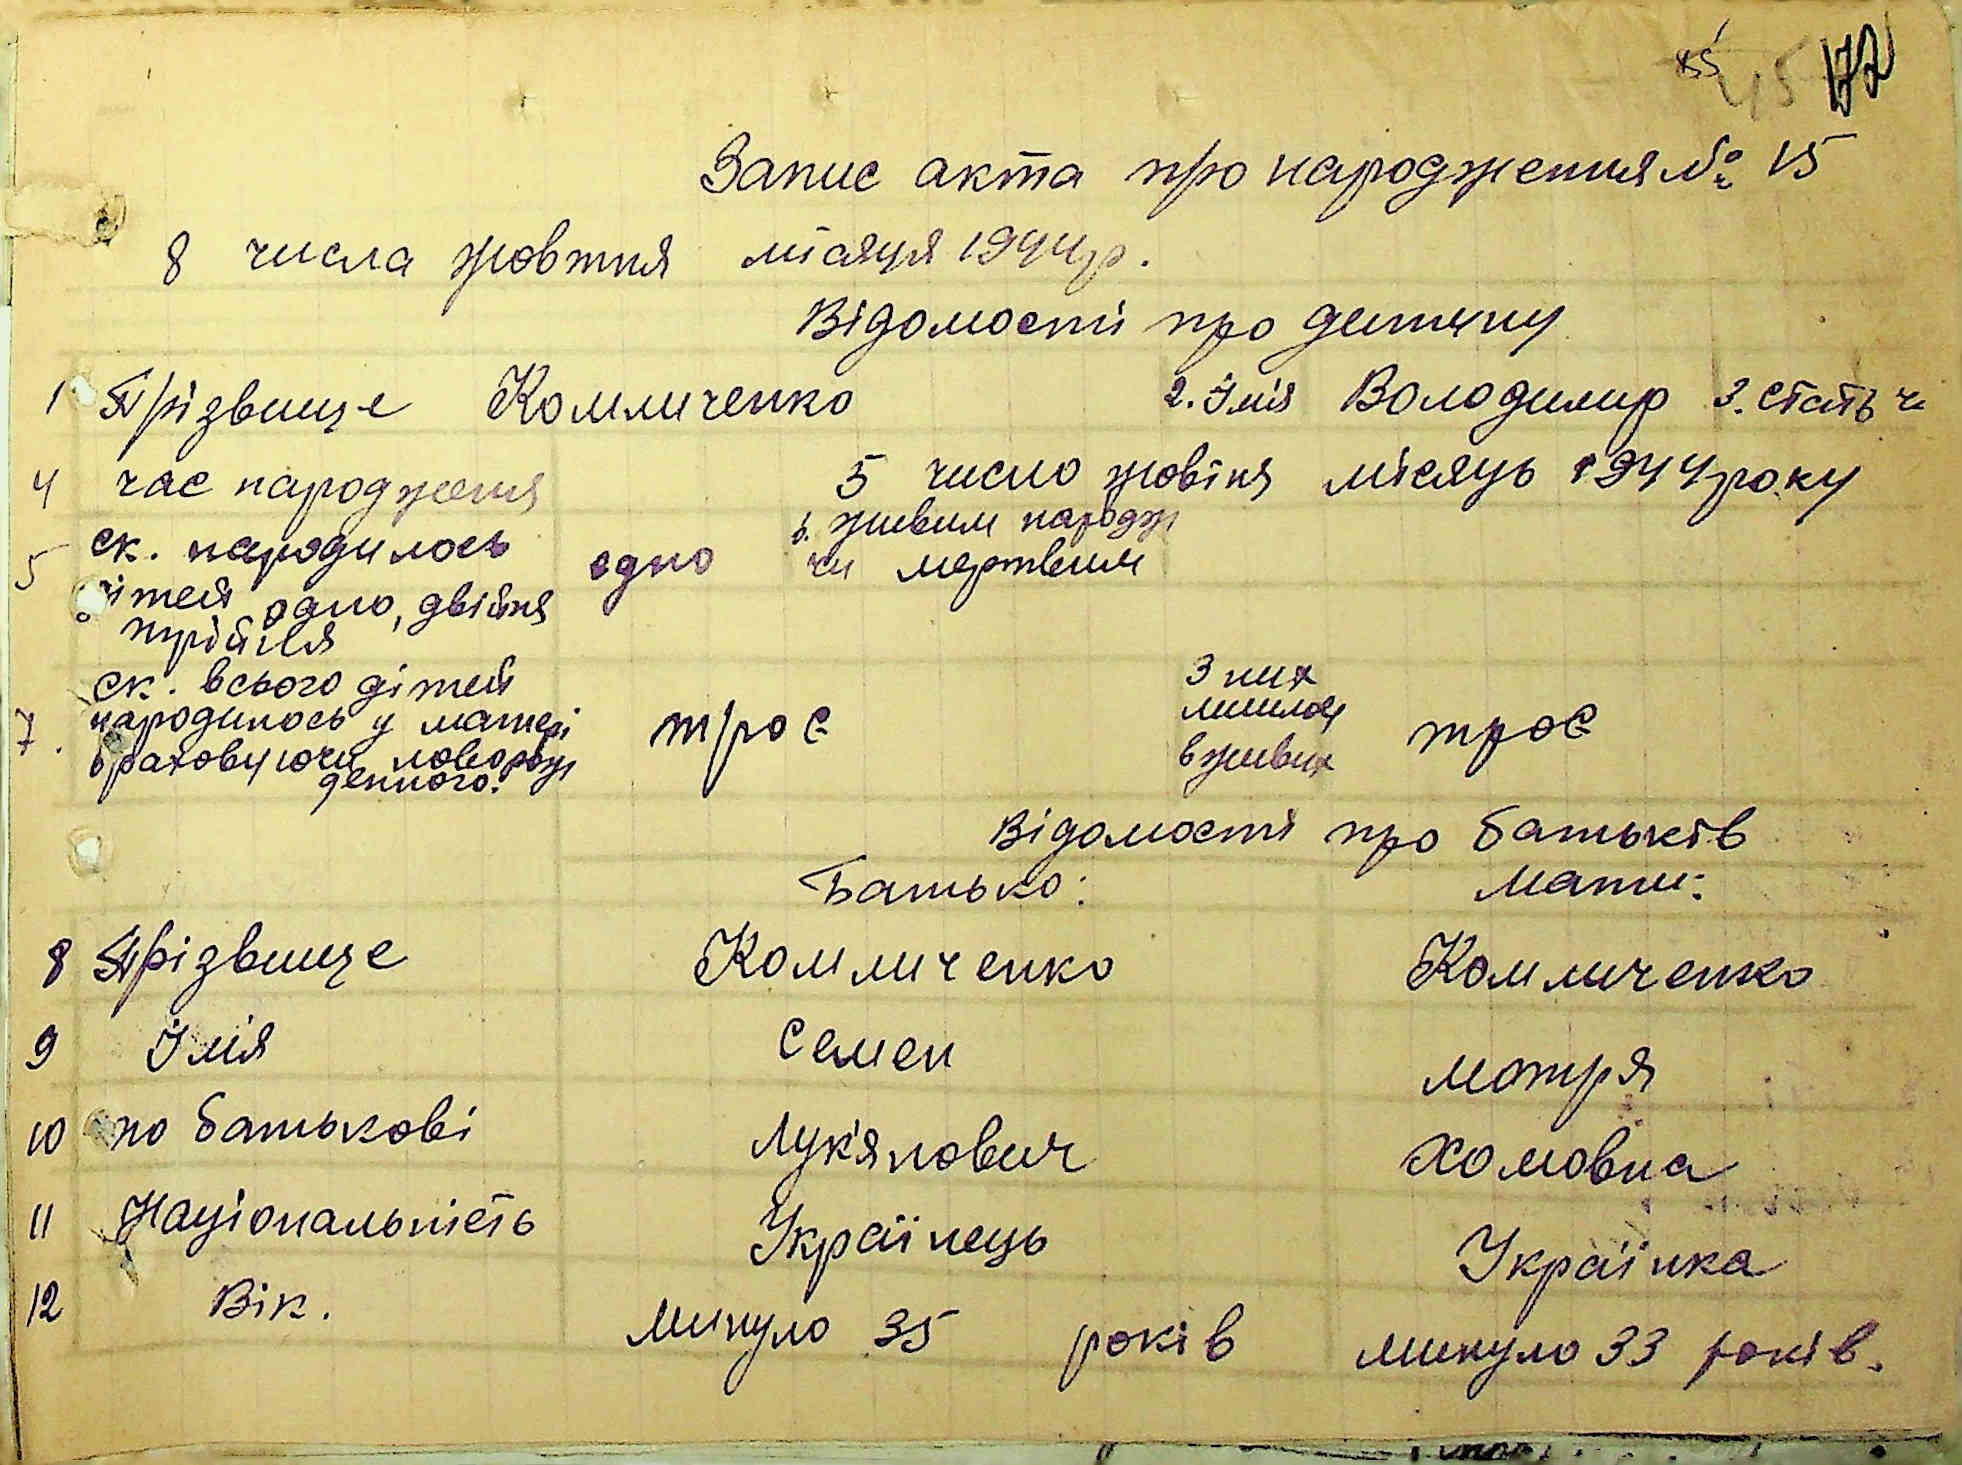 85 45 172
Запис акта про народження № 15
8 числа жовтня місяця 1944 р.
Відомості про дитину
1 Прізвище Коммиченко 2. Імія Володимир 3. стать ч
4 час народження 5 число жовтня місяць 1944 року
5 ск. народилось одно 6. живим народж
дітей одно, двійня чи мертвим
трійня
7. ск. всього дітей троє З них троє
народилось у матері лишилось
враховуючи новорож в живих
денного.
Відомості про батьків
Батько: Мати:
8 Прізвище Коммиченко Коммиченко
9 Імія Семен Мотря
10 по батькові Лук'янович Хомовна
11 Національність Українець Українка
12 Вік. минуло 35 років минуло 33 років.